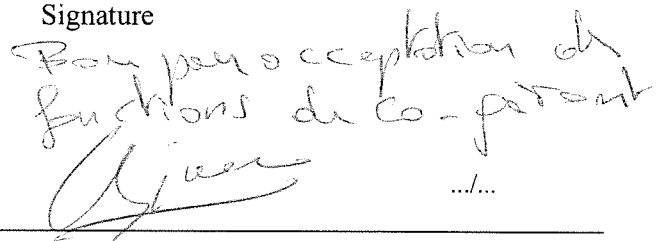 Signature
Bon pour acceptation de
fonctions de co-gérant
.../...